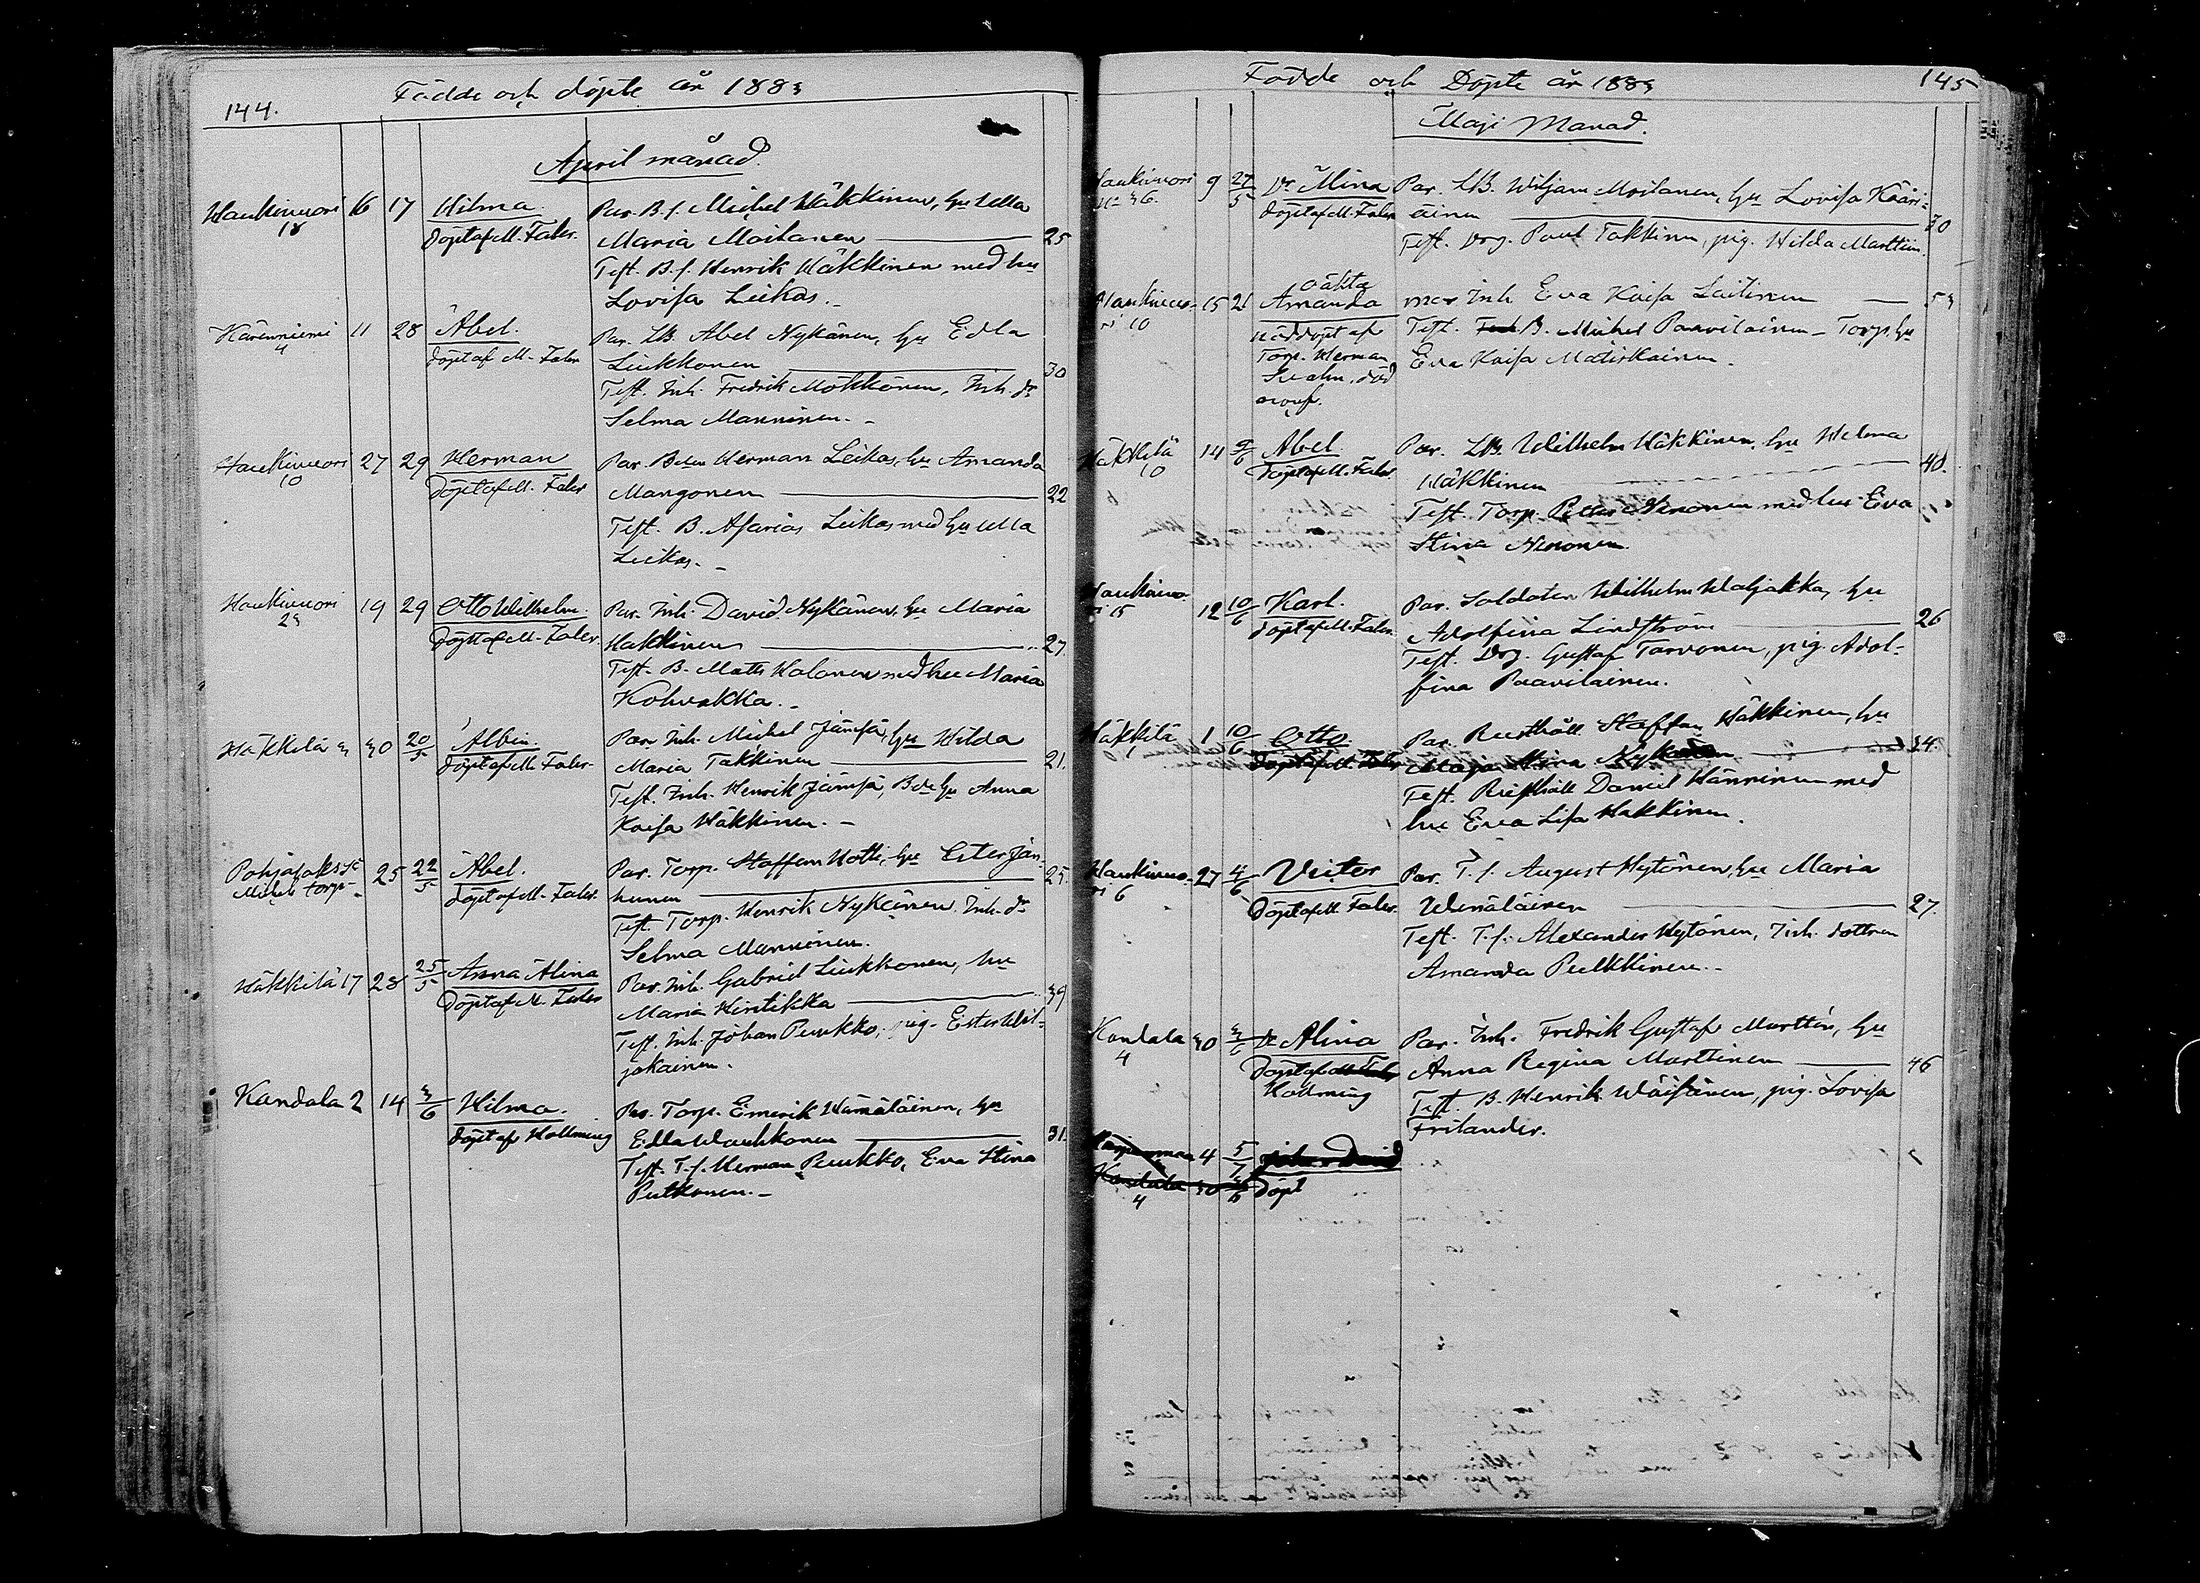 144.
Födde och döpte år 1883
April månad.
Haukivuori 16 17 Hilma Par. B.s. Michel Häkkinen, hu Ulla
18 döpt af M. Faler. Maria Moilanen 25
Test. B.s. Henrik Häkkinen med hu
Lovisa Leikas.
Kärenniemi 11 28 Abel. Par. LB. Abel Nykänen, hu Edla
4 döpt af M. Faler Liukkonen 30
Test. Inh. Fredrik Mökkönen, Inh. dr
Selma Manninen.
Haukivuori 27 29 Herman Par. Herman Leikas, hu Amanda
10 döpt af M. Faler Mangonen 22
Test. B. Asarias Leikas med hu Ulla
Leikas.
Haukivuori 19 29 Otto Wilhelm. Par. Inh. David Nykänen, hu Maria
23 döpt af M. Faler. Hakkinen 27.
Test. B. Matts Kolonen med hu Maria
Kohvakka.
Häkkilä 3 30 20/5 Albin. Par. Inh. Michel Jämsä, hu Hilda
döpt af M. Faler. Maria Takkinen 21.
Test. Inh. Henrik Jämsä, hu Anna
Kaisa Häkkinen.
25 22/5 Abel. Par. Torp. Staffan Hotti, hu Ester Jän-
Michels torp döpt af M. Faler. hunen 25.
Test. Torp. Henrik Nykänen, Inh. dr
Selma Manninen.
Häkkilä 17 28 25/5 Anna Alina Par. Inh. Gabriel Liukkonen, hu
döpt af M. Faler Maria Hintikka 39
Test. Inh. Johan Peukko, pig. Ester Wil-
jakainen.
Kandala 2 14 3/6 Hilma. Par. Torp. Emerik Hämäläinen, hu
döpt af Hollming Edla Wauhkonen 31.
Test. T.s. Herman Peukko, Eva Stina
Putkonen.
Födde och Döpte år 1883
145
Maji Manad.
Haukivuori 9 27/5 Alina Par. LB. Wiljam Moilanen, hu Lovisa Kääri-
No 36. döpt af M. Faler äinen 30
Test. Drg. Paul Takkinen, pig. Hilda Marttinen
oäkta
Haukivuo- 15 21 Amanda mor Inh Eva Kaisa Laitinen 53
ri 10 nöddöpt af Test. B. Michel Paavilainen - Torp. hu
Torp. Herman Eva Kaisa Matiskainen
Svahn, död
Häkkilä 14 9/6 Abel Par. LB. Wilhelm Häkkinen, hu Helma
10 döpt af M. Faler. Häkkinen 40.
Test. Torp. Petter Nenonen med hu Eva
Stina Nenonen.
Haukivuo- 12 10/6 Karl. Par. Soldaten Wilhelm Waljakka, hu
ri 15 döpt af M. Faler. Adolfina Lindström 26
Test. Drg. Gustaf Tarvonen, pig. Adol-
fina Paavilainen.
Häkkilä 1 10/6 Otto. Par. Rusthåll Staffan Häkkinen, hu
1 döpt af M. Faler Maja Stina 34.
Test. Rusthåll Daniel Hänninen med
hu Eva Lisa Hakkinen.
Haukivuo- 27 4/6 Victor Par. T.s. August Hytönen, hu Maria
ri 6 döpt af M. Faler. Wenäläinen 27.
Test. T.s. Alexander Hytönen, Inh. dottren
Amanda Pulkkinen.
Kandala 30 3/6 Alina Par. Inh. Fredrik Gustaf Marttin, hu
4 döpt af Anna Regina Marttinen 46
Hollming Test. B. Henrik Wäisänen, pig. Lovisa
Frilander.
4 5/7
Kandala 30 döpt
4